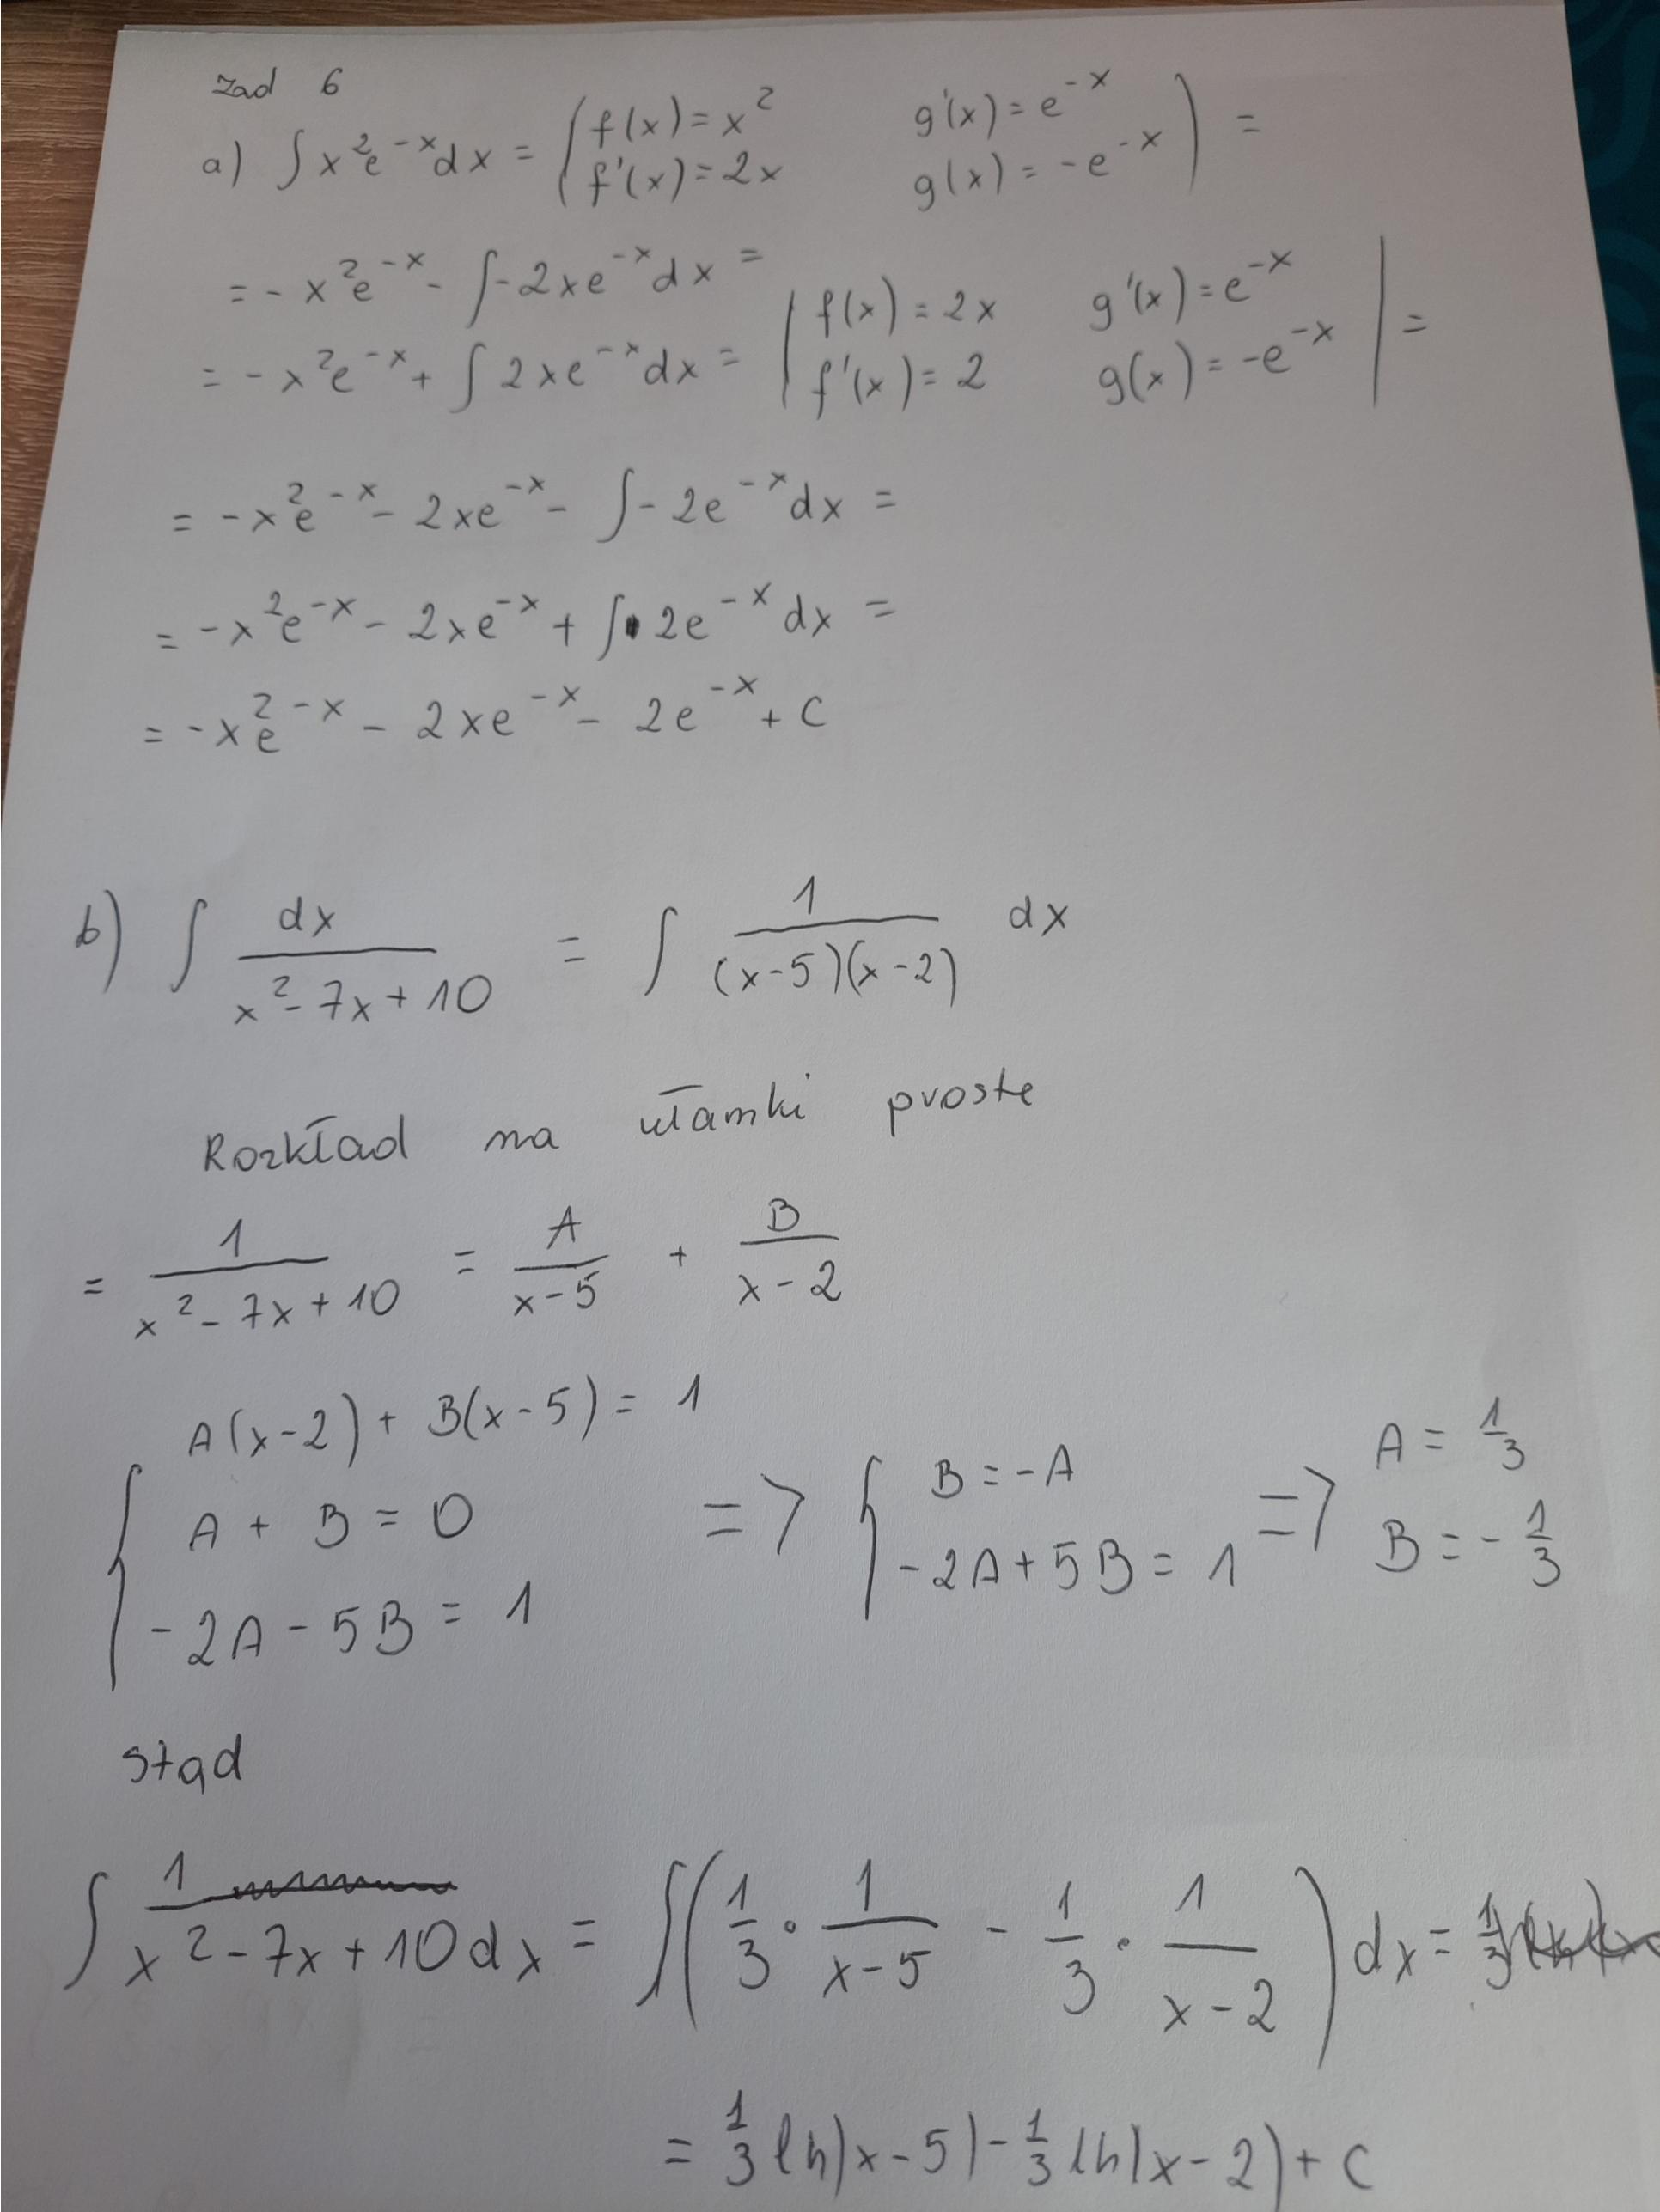 Zad 6
a) ∫ x²e⁻ˣdx = ( f(x) = x² g'(x) = e⁻ˣ
f'(x) = 2x g(x) = -e⁻ˣ ) =
= -x²e⁻ˣ - ∫-2xe⁻ˣdx =
= -x²e⁻ˣ + ∫ 2xe⁻ˣdx = | f(x) = 2x g'(x) = e⁻ˣ
f'(x) = 2 g(x) = -e⁻ˣ | =
= -x²e⁻ˣ - 2xe⁻ˣ - ∫-2e⁻ˣdx =
= -x²e⁻ˣ - 2xe⁻ˣ + ∫ 2e⁻ˣ dx =
= -x²e⁻ˣ - 2xe⁻ˣ - 2e⁻ˣ + C
b) ∫ dx/(x²-7x+10) = ∫ 1/((x-5)(x-2)) dx
Rozkład na ułamki proste
= 1/(x²-7x+10) = A/(x-5) + B/(x-2)
A(x-2) + B(x-5) = 1
{ A + B = 0 => { B = -A => A = 1/3
-2A - 5B = 1 -2A + 5B = 1 B = -1/3
stąd
∫ 1/(x²-7x+10) dx = ∫( 1/3 · 1/(x-5) - 1/3 · 1/(x-2) ) dx = 1/3
= 1/3 ln|x-5| - 1/3 ln|x-2| + C